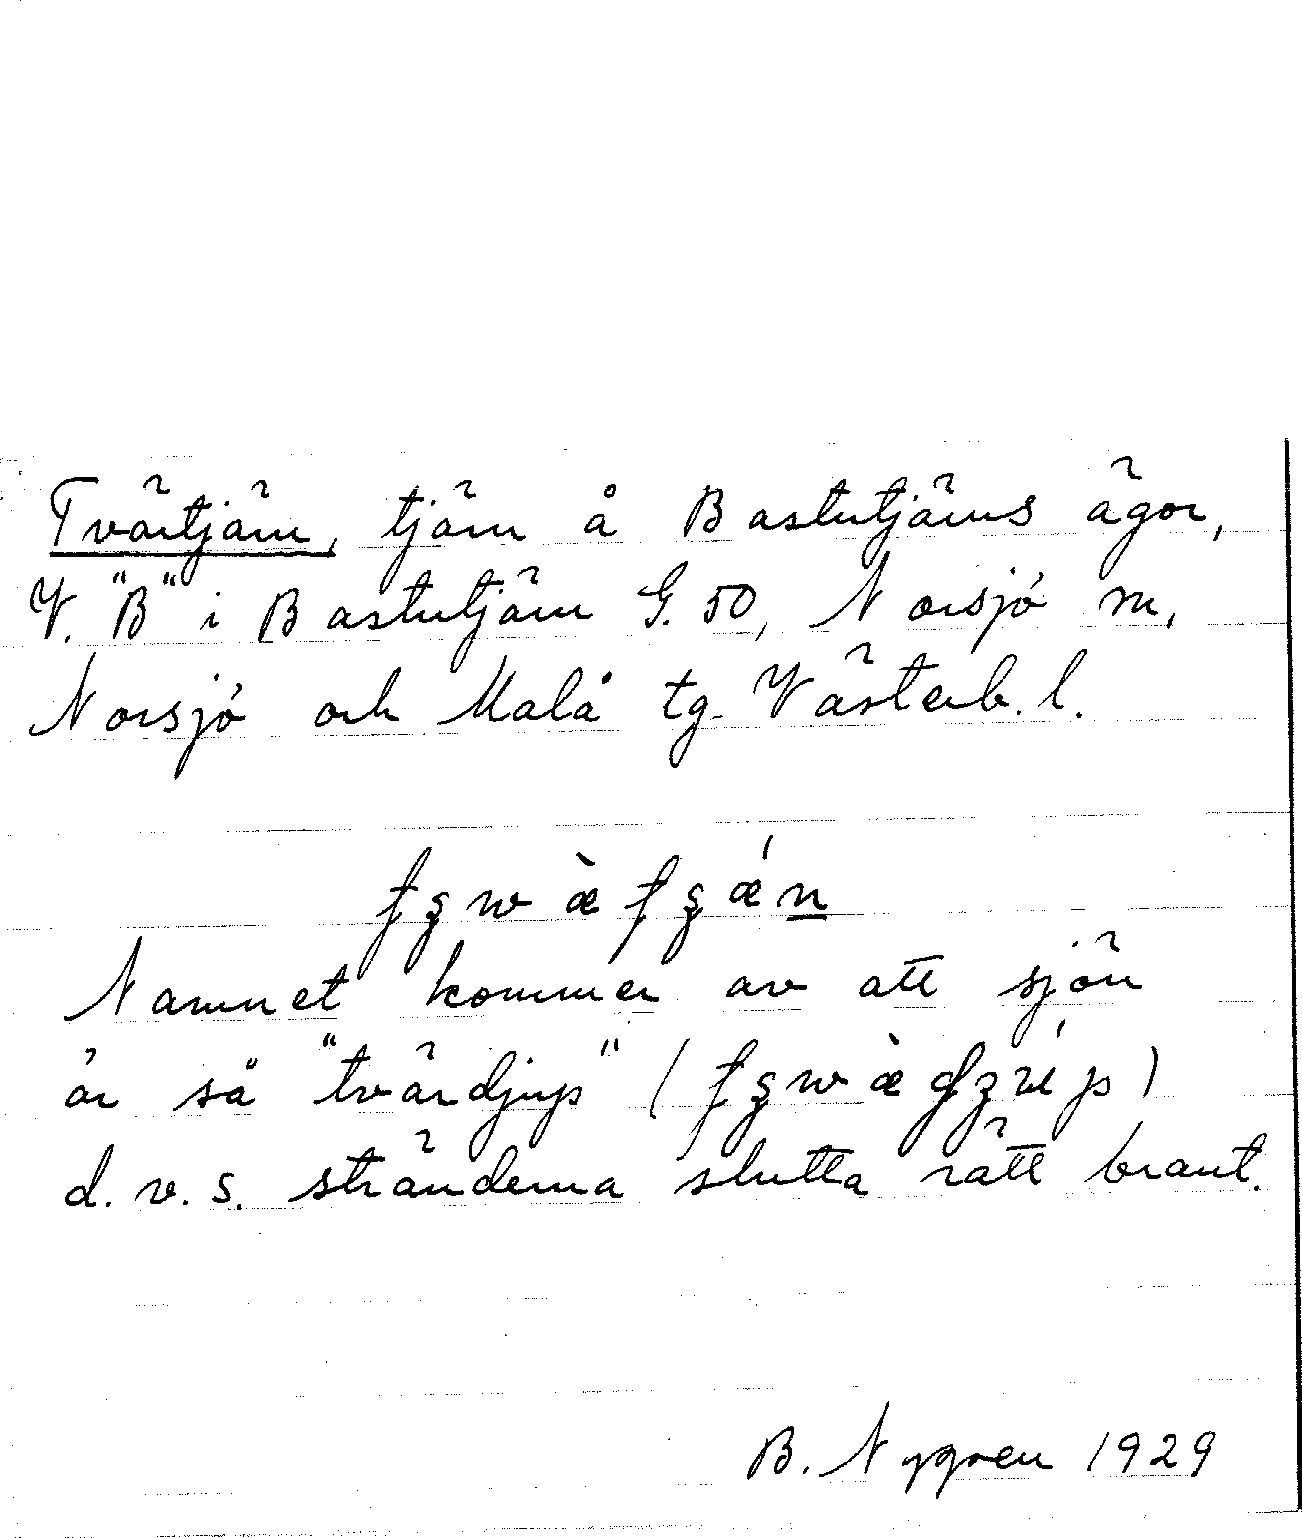 Tvärtjärn, tjärn å Bastutjärns ägor,
V. "B" i Bastutjärn G. 50, Norsjö sn,
Norsjö och Malå tg. Västerb. l.
Namnet kommer av att sjön
är så "tvärdjup" (
)
d. v. s. stränderna slutta rätt brant.
B. Nygren 1929